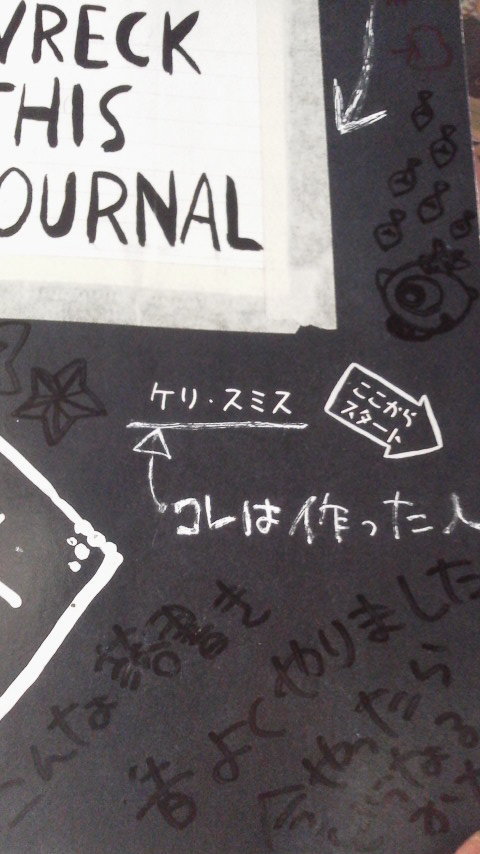 WRECK
THIS
JOURNAL
ケリ・スミス
ここから
スタート
コレは作った人
こんな落書き
昔よくやりました